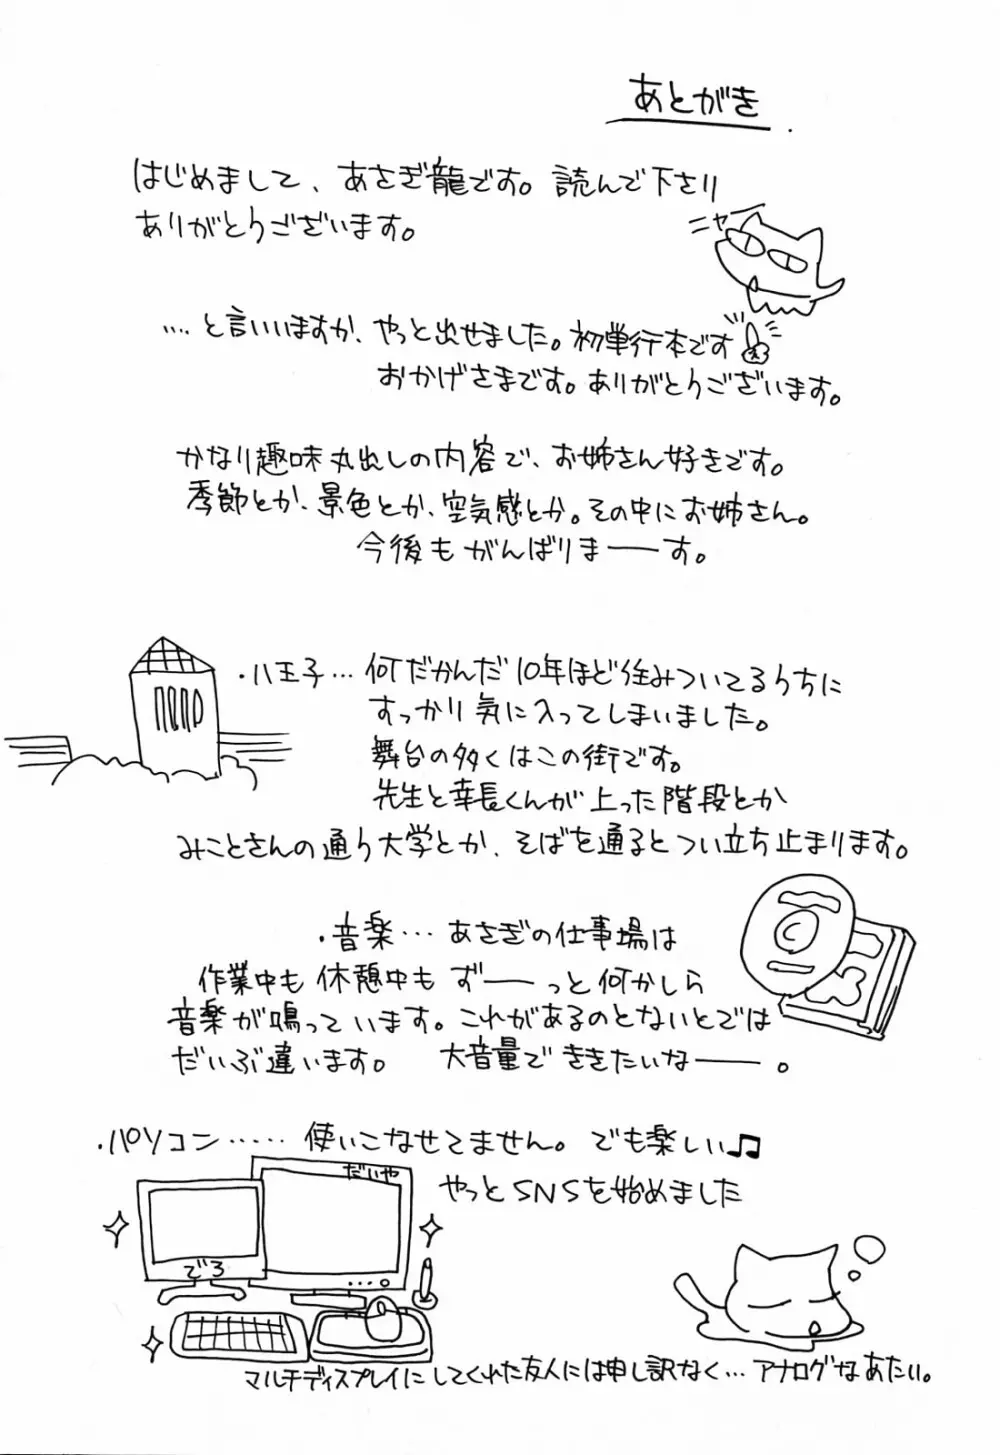 あとがき
はじめまして、あさぎ龍です。読んで下さり
ありがとうございます。
ニャー
‥‥と言いますか、やっと出せました。初単行本です
おかげさまです。ありがとうございます。
かなり趣味丸出しの内容で、お姉さん好きです。
季節とか、景色とか、空気感とか。その中にお姉さん。
今後もがんばりまーーす。
・八王子…何だかんだ10年ほど住みついてるうちに
すっかり気に入ってしまいました。
舞台の多くはこの街です。
先生と幸長くんが上った階段とか
みことさんの通う大学とか、そばを通るとつい立ち止まります。
・音楽…あさぎの仕事場は
作業中も休憩中もずーーっと何かしら
音楽が鳴っています。これがあるのとないとでは
だいぶ違います。 大音量でききたいなーー。
・パソコン……使いこなせてません。でも楽しい♫
やっとSNSを始めました
だいや
でろ
マルチディスプレイにしてくれた友人には申し訳なく…アナログなあたい。